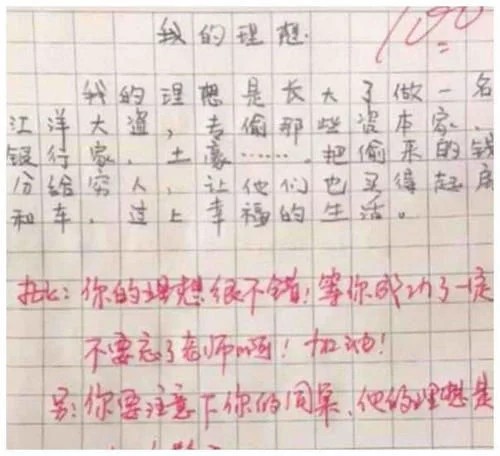 我的理想.
100
我的理想是长大了做一名
江洋大盗,专偷那些资本家、
银行家、土豪……。把偷来的钱
分给穷人,让他们也买得起房
和车,过上幸福的生活。
批:你的理想很不错!等你成功了一定
不要忘了老师啊!加油!
另:你要注意下你的同桌,他的理想是